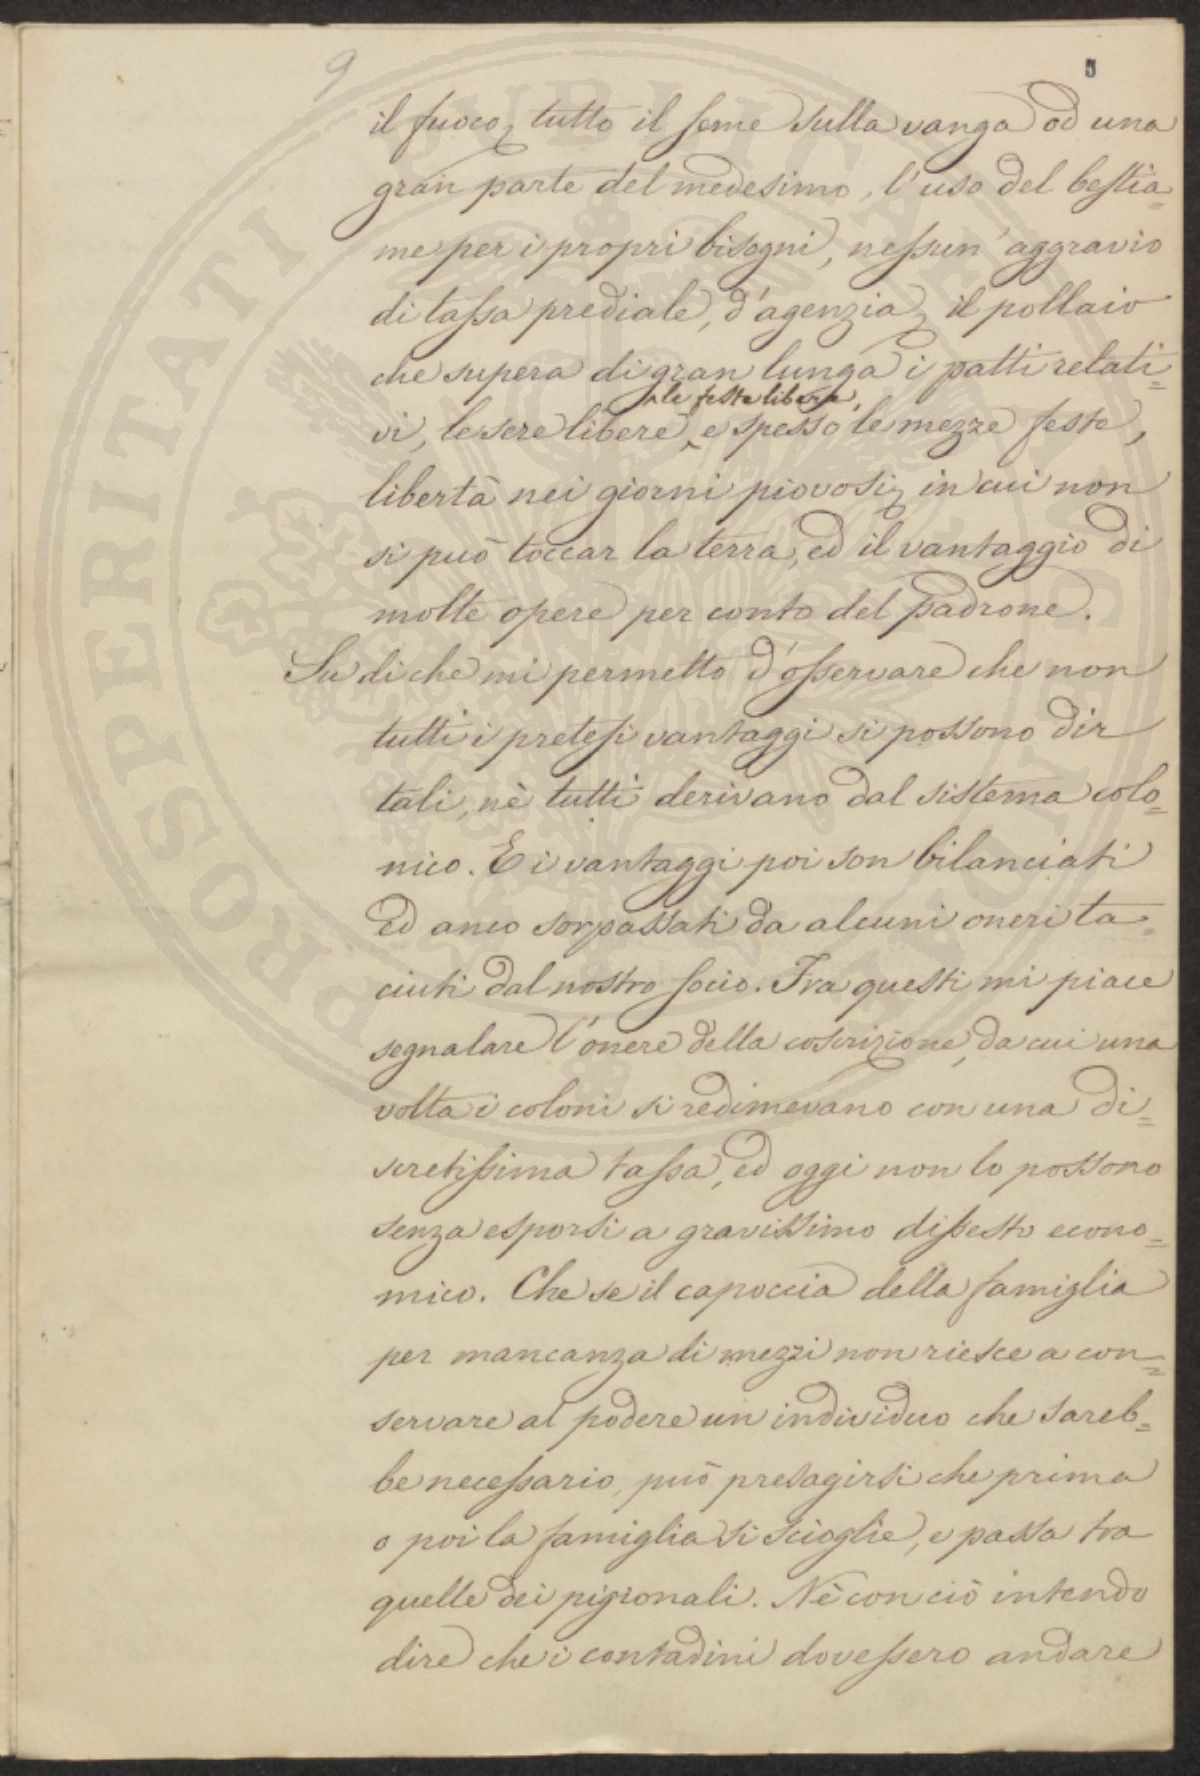 9
5
il fuoco, tutto il seme sulla vanga od una
gran parte del medesimo, l'uso del bestia=
me per i propri bisogni, nessun' aggravio
di tassa prediale, d'agenzia, il pollaio
che supera di gran lunga i patti relati=
le feste libere,
vi, le sere libere, e spesso le mezze feste,
libertà nei giorni piovosi, in cui non
si può toccar la terra, ed il vantaggio di
molte opere per conto del padrone.
Su di che mi permetto d'osservare che non
tutti i pretesi vantaggi si possono dir
tali, nè tutti derivano dal sistema colo=
nico. E i vantaggi poi son bilanciati
ed anco sorpassati da alcuni oneri ta=
ciuti dal nostro socio. Tra questi mi piace
segnalare l'onere della coscrizione, da cui una
volta i coloni si redimevano con una di=
scretissima tassa, ed oggi non lo possono
senza esporsi a gravissimo dissesto econo=
mico. Che se il capoccia della famiglia
per mancanza di mezzi non riesce a con=
servare al podere un individuo che sareb=
be necessario, può presagirsi che prima
o poi la famiglia si scioglie, e passa tra
quelle dei pigionali. Nè con ciò intendo
dire che i contadini dovessero andare
PROSPERITATI PUBLICAE